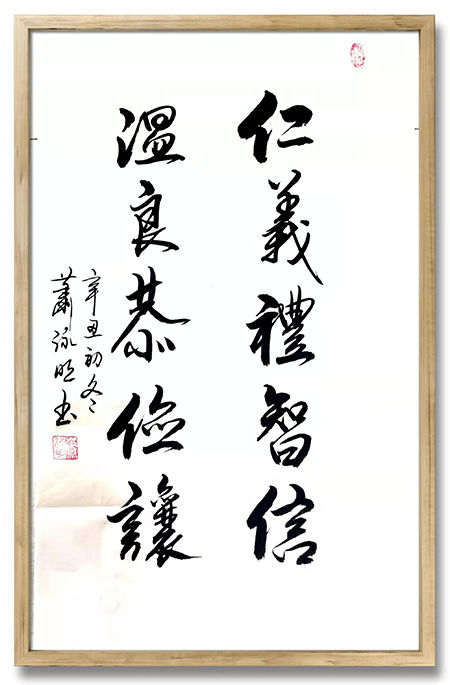 仁義禮智信
溫良恭儉讓
辛丑初冬
蕭詠明书